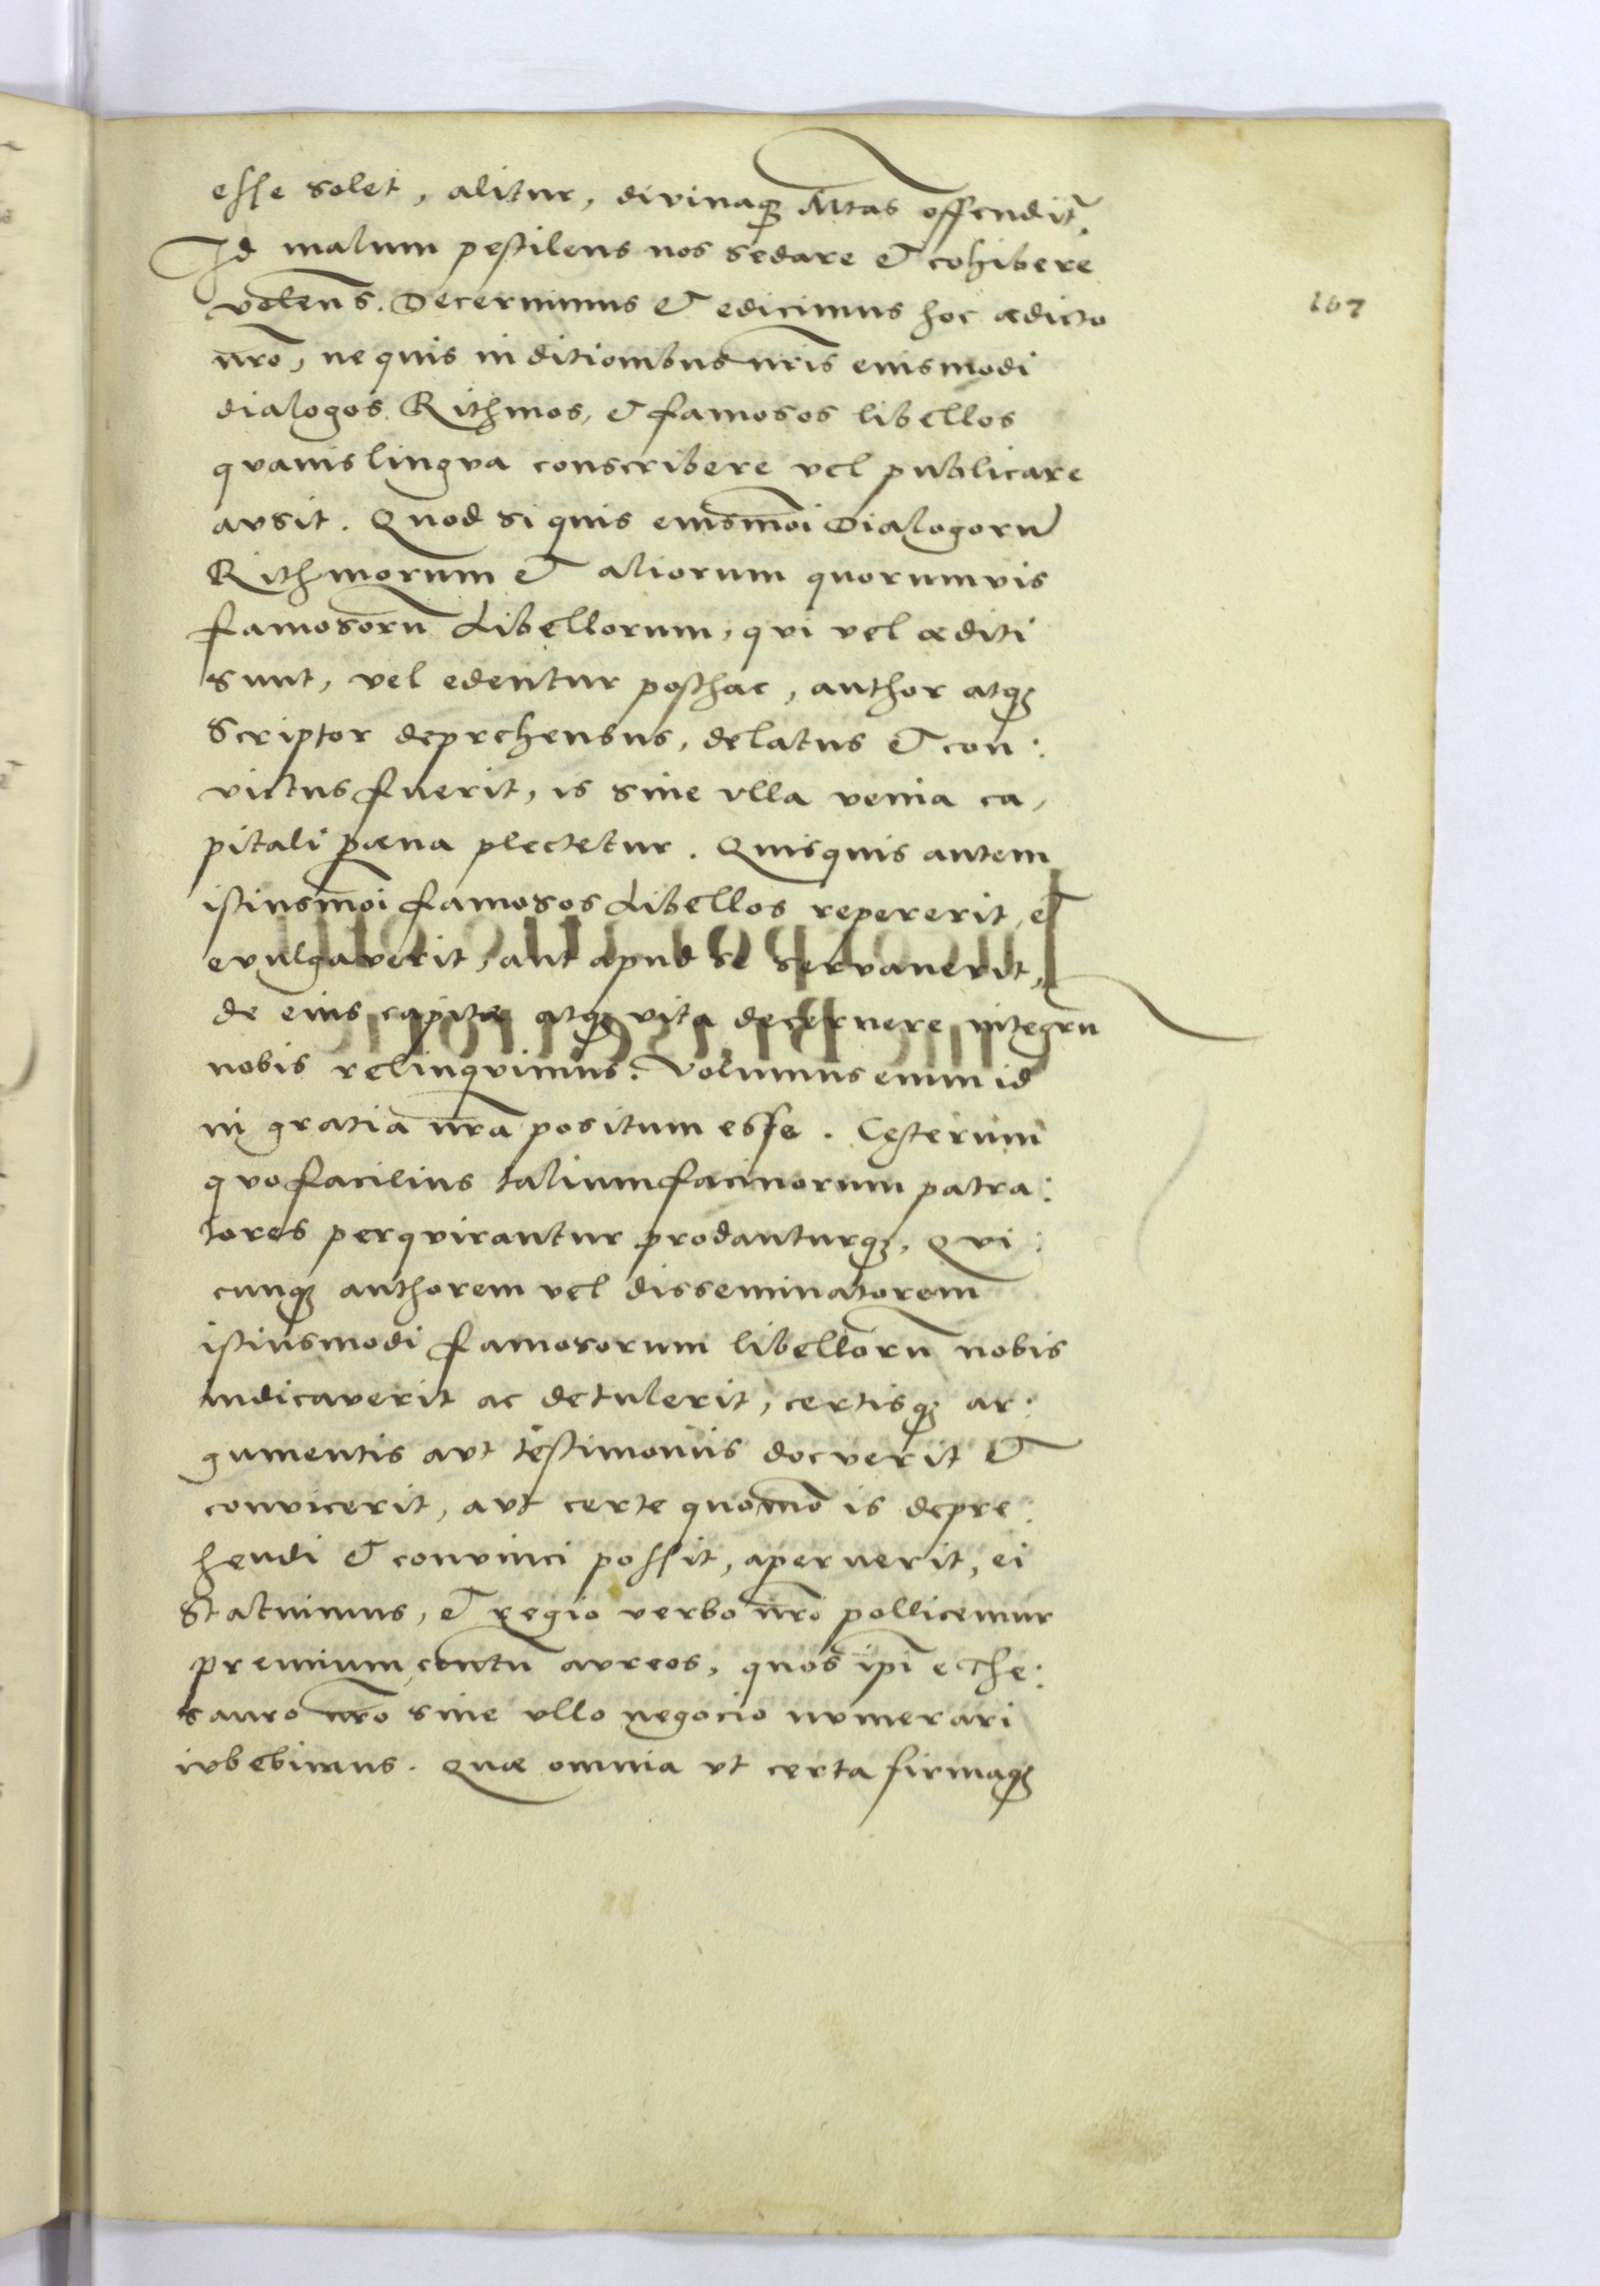 esse solet, alitur, divinaq́ꝫ Mtas offendit̃.
Id malum pestilens nos sedare et cohibere
volens. Decernimus et edicimus hoc ædicto
nr̃o, ne quis in ditionibus nr̃is eiusmodi
dialogos Rithmos, et famosos libellos
quavis lingva conscribere vel publicare
avsit. Quod si quis eiusmõi Dialogorũ
Rithmorum et aliorum quorumvis
famosorũ Libellorum, qvi vel æditi
sunt, vel edentur posthac, author atqꝫ
Scriptor deprehensus, delatus et con:
victus fuerit, is sine vlla venia ca,
pitali pæna plectetur. Quisquis autem
istiusmõi famosos Libellos repererit, et
evulgaverit, aut apud se servaverit,
de eius capite atqꝫ vita decernere integrũ
nobis relinqvimus. Volumus enim id
in gratia nr̃a positum esse. Cęterum
qvo facilius talium facinorum patra:
tores perqvirantur prodanturqꝫ, Qvi:
cunqꝫ authorem vel disseminatorem
istiusmodi famosorum libellorũ nobis
indicaverit ac detulerit, certisqꝫ ar:
gumentis avt testimoniis docverit et
convicerit, avt certe quomõ is depre:
hendi et convinci possit, aperuerit, ei
Statuimus, et regio verbo nr̃o pollicemur
premium centũ avreos, quos ip̃i e The:
sauro nr̃o sine vllo negocio nvmerari
ivbebimus. Quæ omnia vt certa firmaqꝫ
167